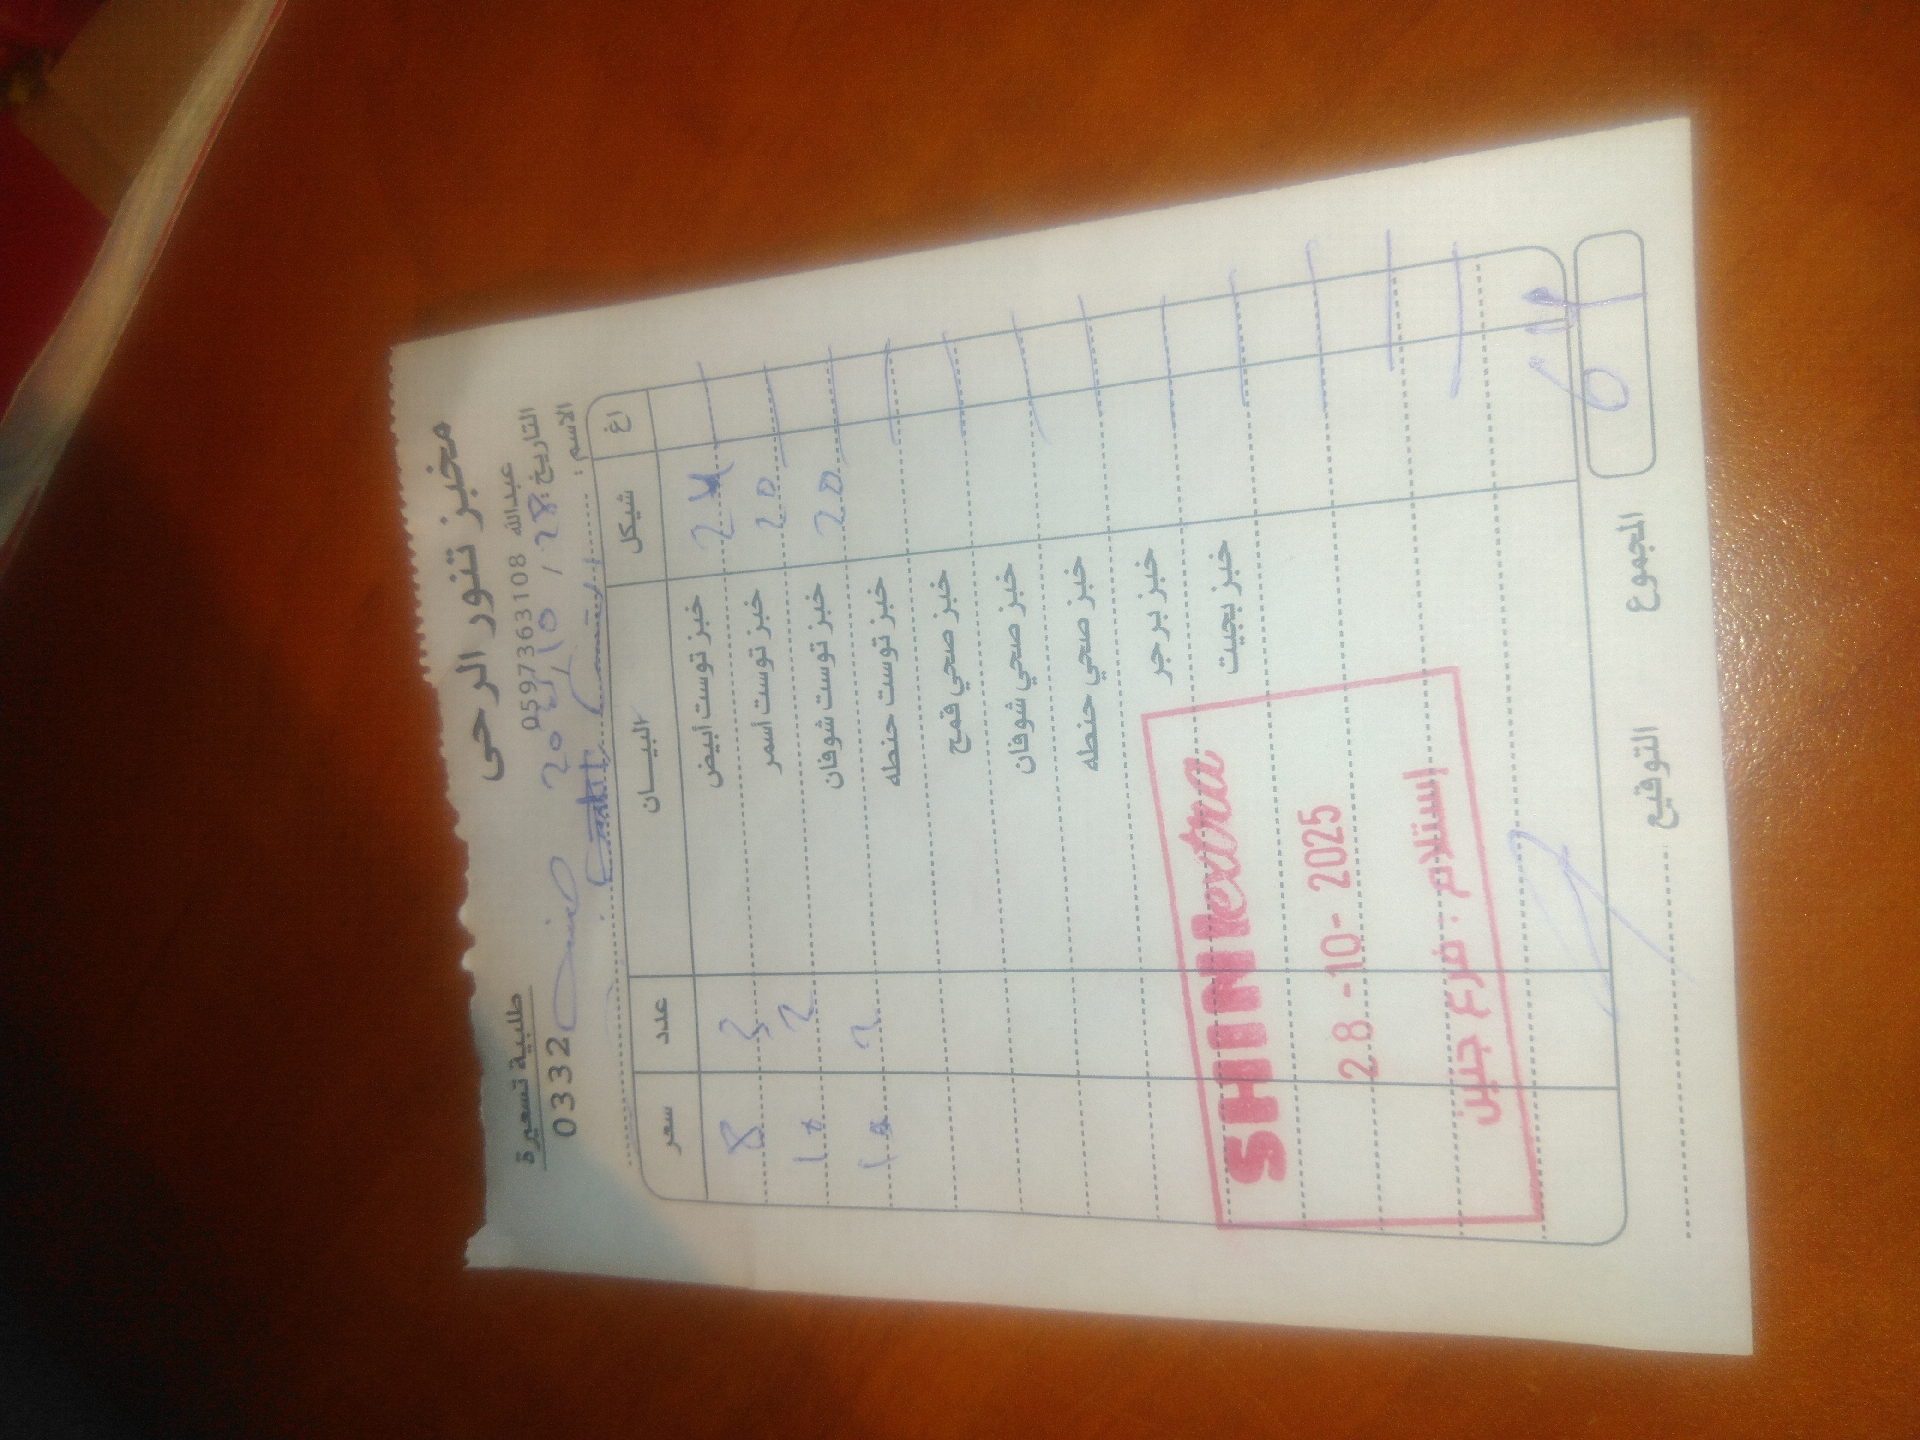 مخبز تنور الرحى
طلبية تسعيرة
عبدالله 0597363108
03320
التاريخ: 28 / 10 / 2025
الاسم:
سعر عدد البيـــان شيكل اغ
8 3 خبز توست أبيض 24
10 2 خبز توست أسمر 20
10 2 خبز توست شوفان 20
خبز توست حنطه
خبز صحي قمح
خبز صحي شوفان
خبز صحي حنطه
خبز برجر
خبز بجيت
SHINI extra
28-10-2025
إستلام - فرع جنين
المجموع 64
التوقيع